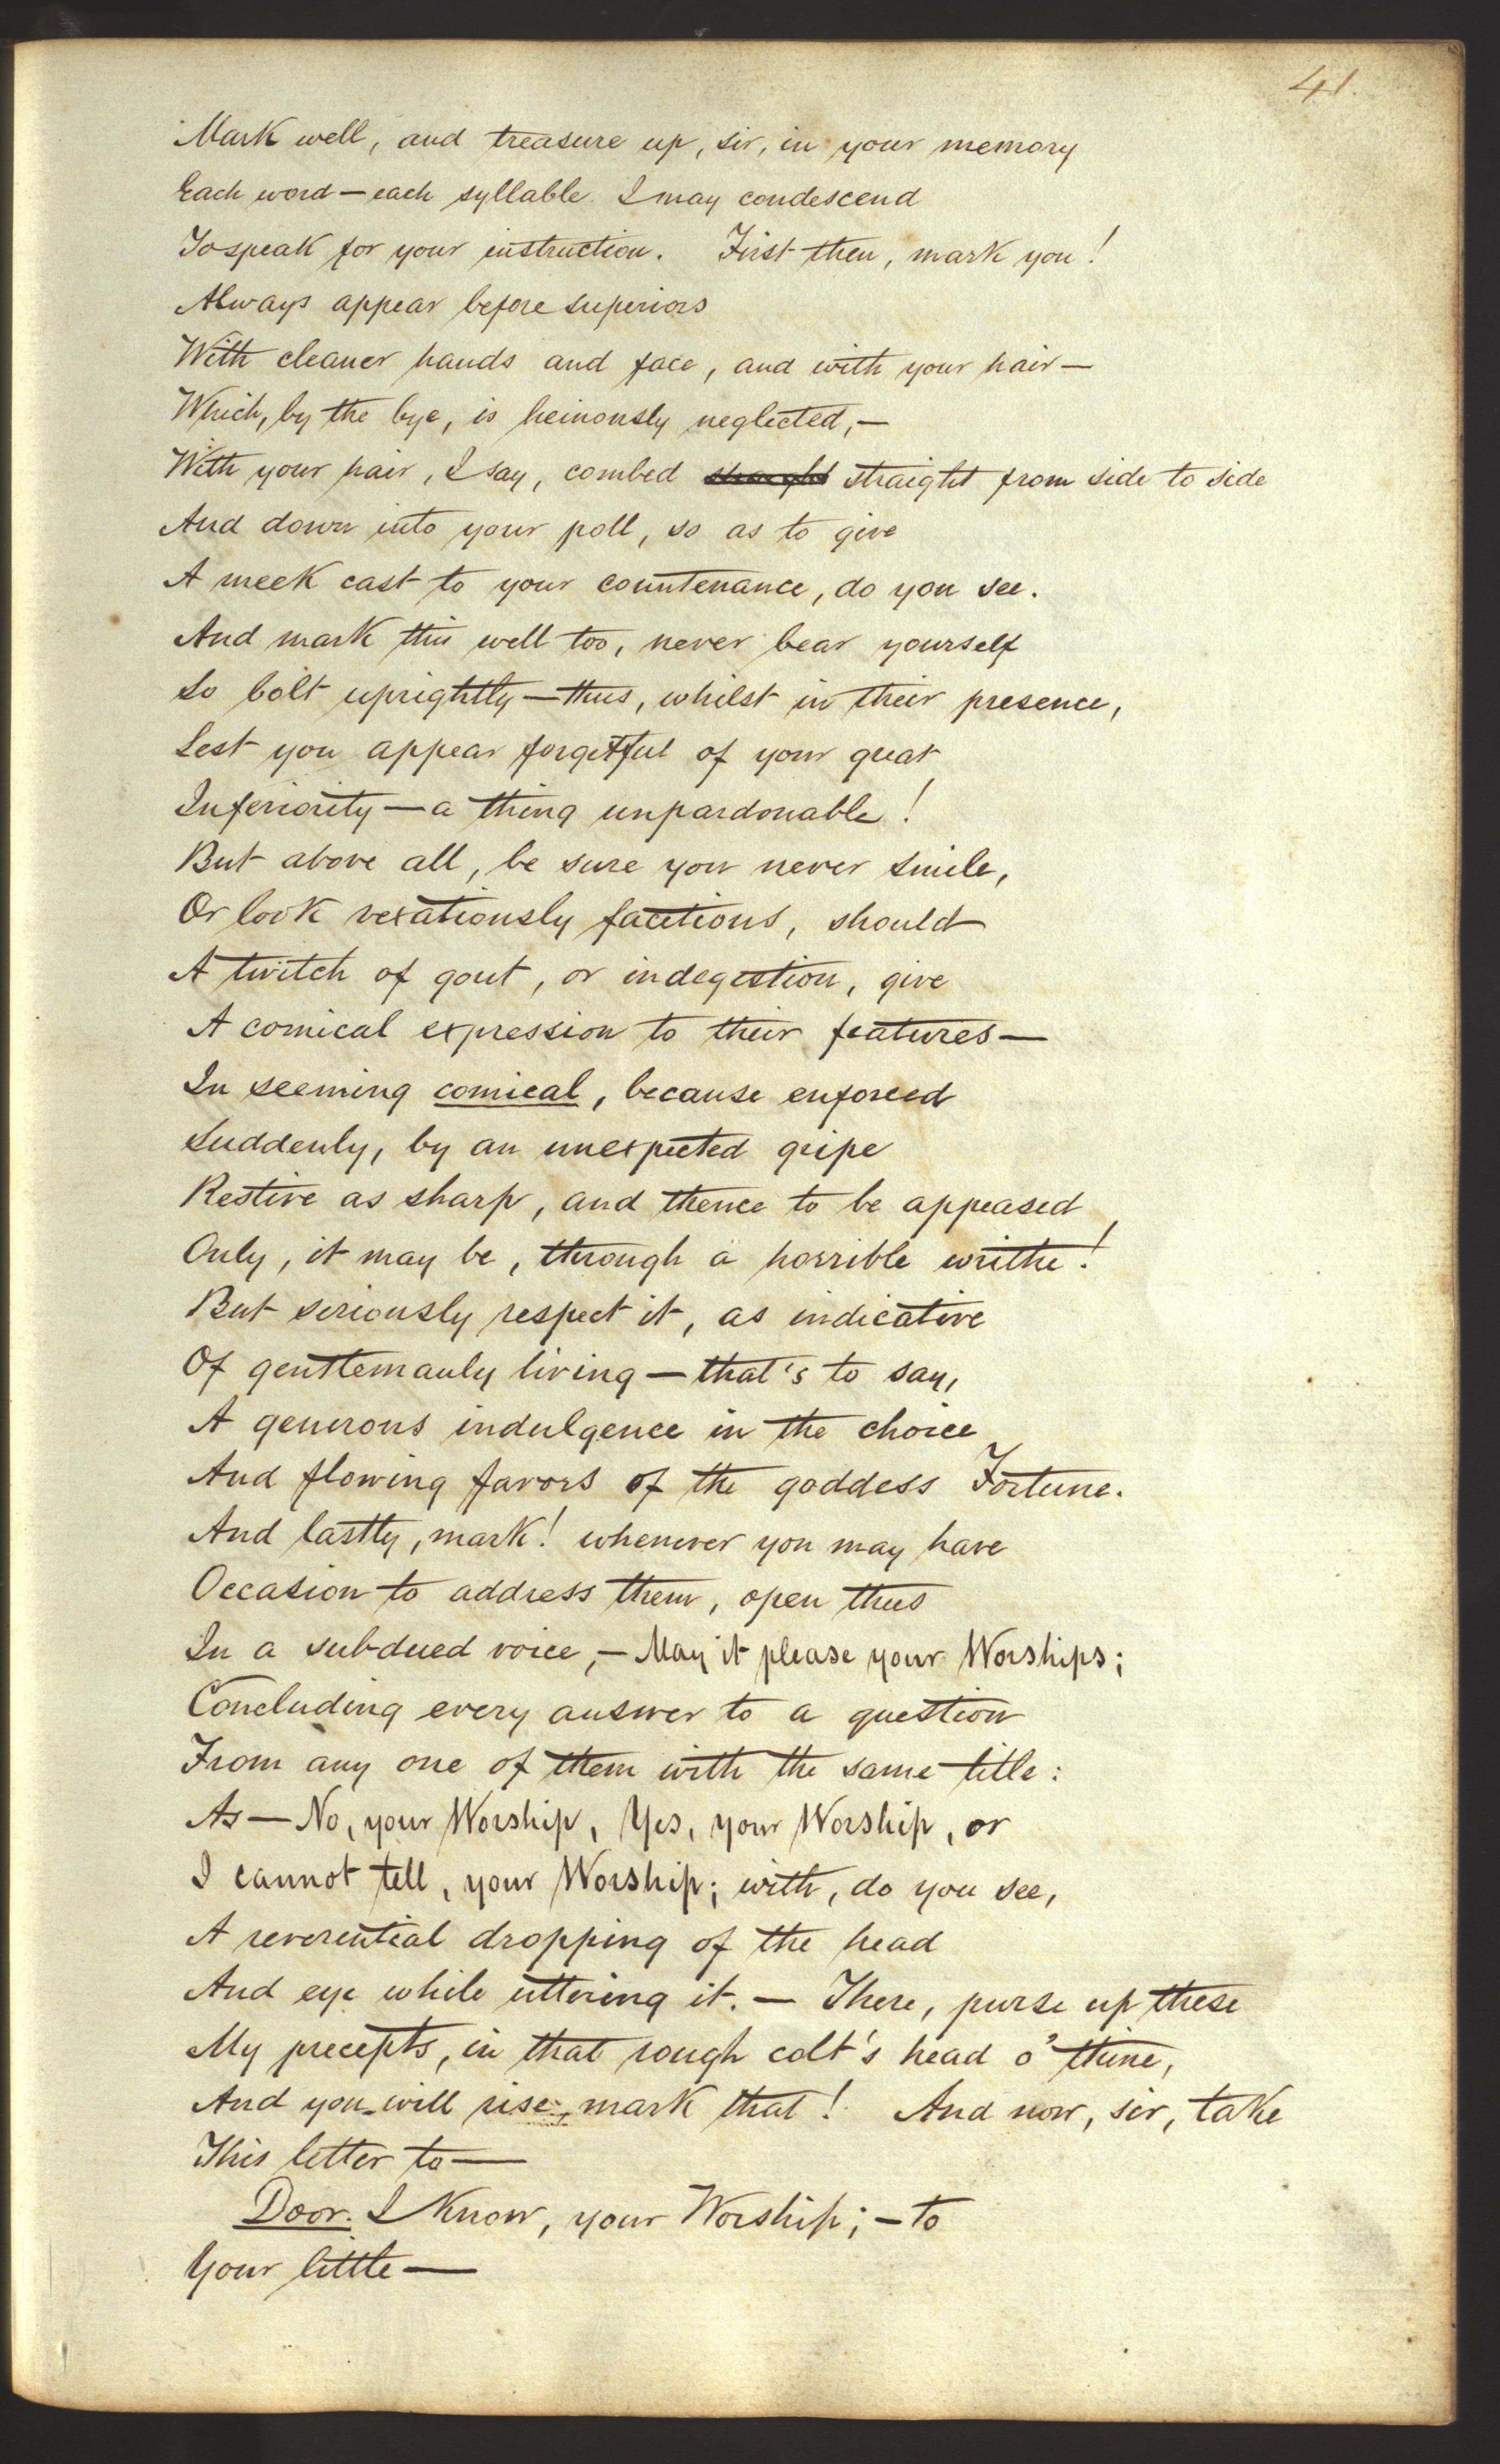 41.
Mark well, and treasure up, sir, in your memory
Each word—each syllable I may condescend
To speak for your instruction. First then, mark you!
Always appear before superiors
With cleaner hands and face, and with your hair—
Which, by the bye, is heinously neglected,—
With your hair, I say, combed straight from side to side
And down into your poll, so as to give
A meek cast to your countenance, do you see.
And mark this well too, never bear yourself
So bolt uprightly—thus, whilst in their presence,
Lest you appear forgetful of your great
Inferiority—a thing unpardonable!
But above all, be sure you never smile,
Or look vexatiously facetious, should
A twitch of gout, or indegestion, give
A comical expression to their features—
In seeming comical, because enforced
Suddenly, by an unexpected gripe
Restive as sharp, and thence to be appeased
Only, it may be, through a horrible writhe!
But seriously respect it, as indicative
Of gentlemanly living—that's to say,
A generous indulgence in the choice
And flowing favors of the goddess Fortune.
And lastly, mark! whenever you may have
Occasion to address them, open thus
In a subdued voice,—May it please your Worships;
Concluding every answer to a question
From any one of them with the same title:
As—No, your Worship, Yes, your Worship, or
I cannot tell, your Worship; with, do you see,
A reverential dropping of the head
And eye while uttering it.—There, purse up these
My precepts, in that rough colt's head o' thine,
And you will rise, mark that! And now, sir, take
This letter to—
Door. I know, your Worship;—to
Your little—